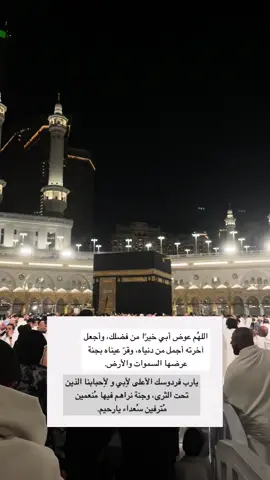 اللهُم عوض أبي خيرًا من فضلك، واجعل
آخرته أجمل من دنياه، وقرّ عيناه بجنة
عرضها السموات والأرض.
يارب فردوسك الأعلى لأبي و لإحبابنا الذين
تحت الثرى، وجنة نراهم فيها مُنعمين
مُترفين سُعداء يارحيم.